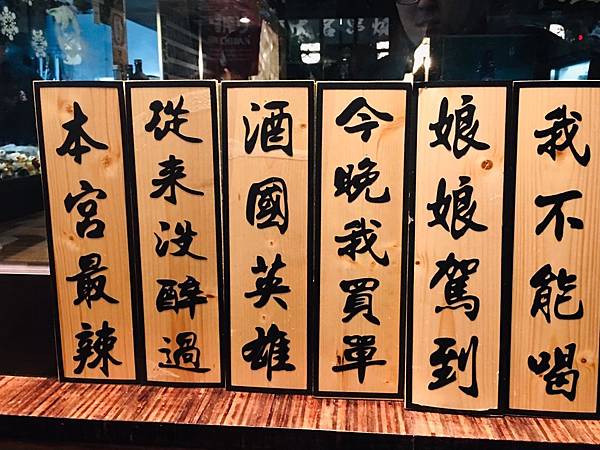 本宮最辣
從来没醉過
酒國英雄
今晚我買單
娘娘駕到
我不能喝